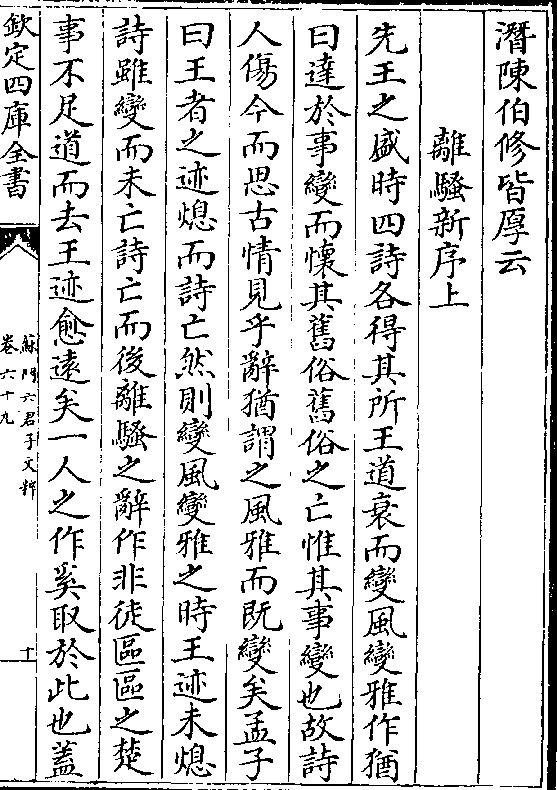 潛陳伯修皆厚云
離騷新序上
先王之盛時四詩各得其所王道衰而變風變雅作猶
曰達於事變而懷其舊俗舊俗之亡惟其事變也故詩
人傷今而思古情見乎辭猶謂之風雅而既變矣孟子
曰王者之迹熄而詩亡然則變風變雅之時王迹未熄
詩雖變而未亡詩亡而後離騷之辭作非徒區區之楚
事不足道而去王迹愈遠矣一人之作奚取於此也蓋
欽定四庫全書
蘇門六君子文粹
卷六十九
十